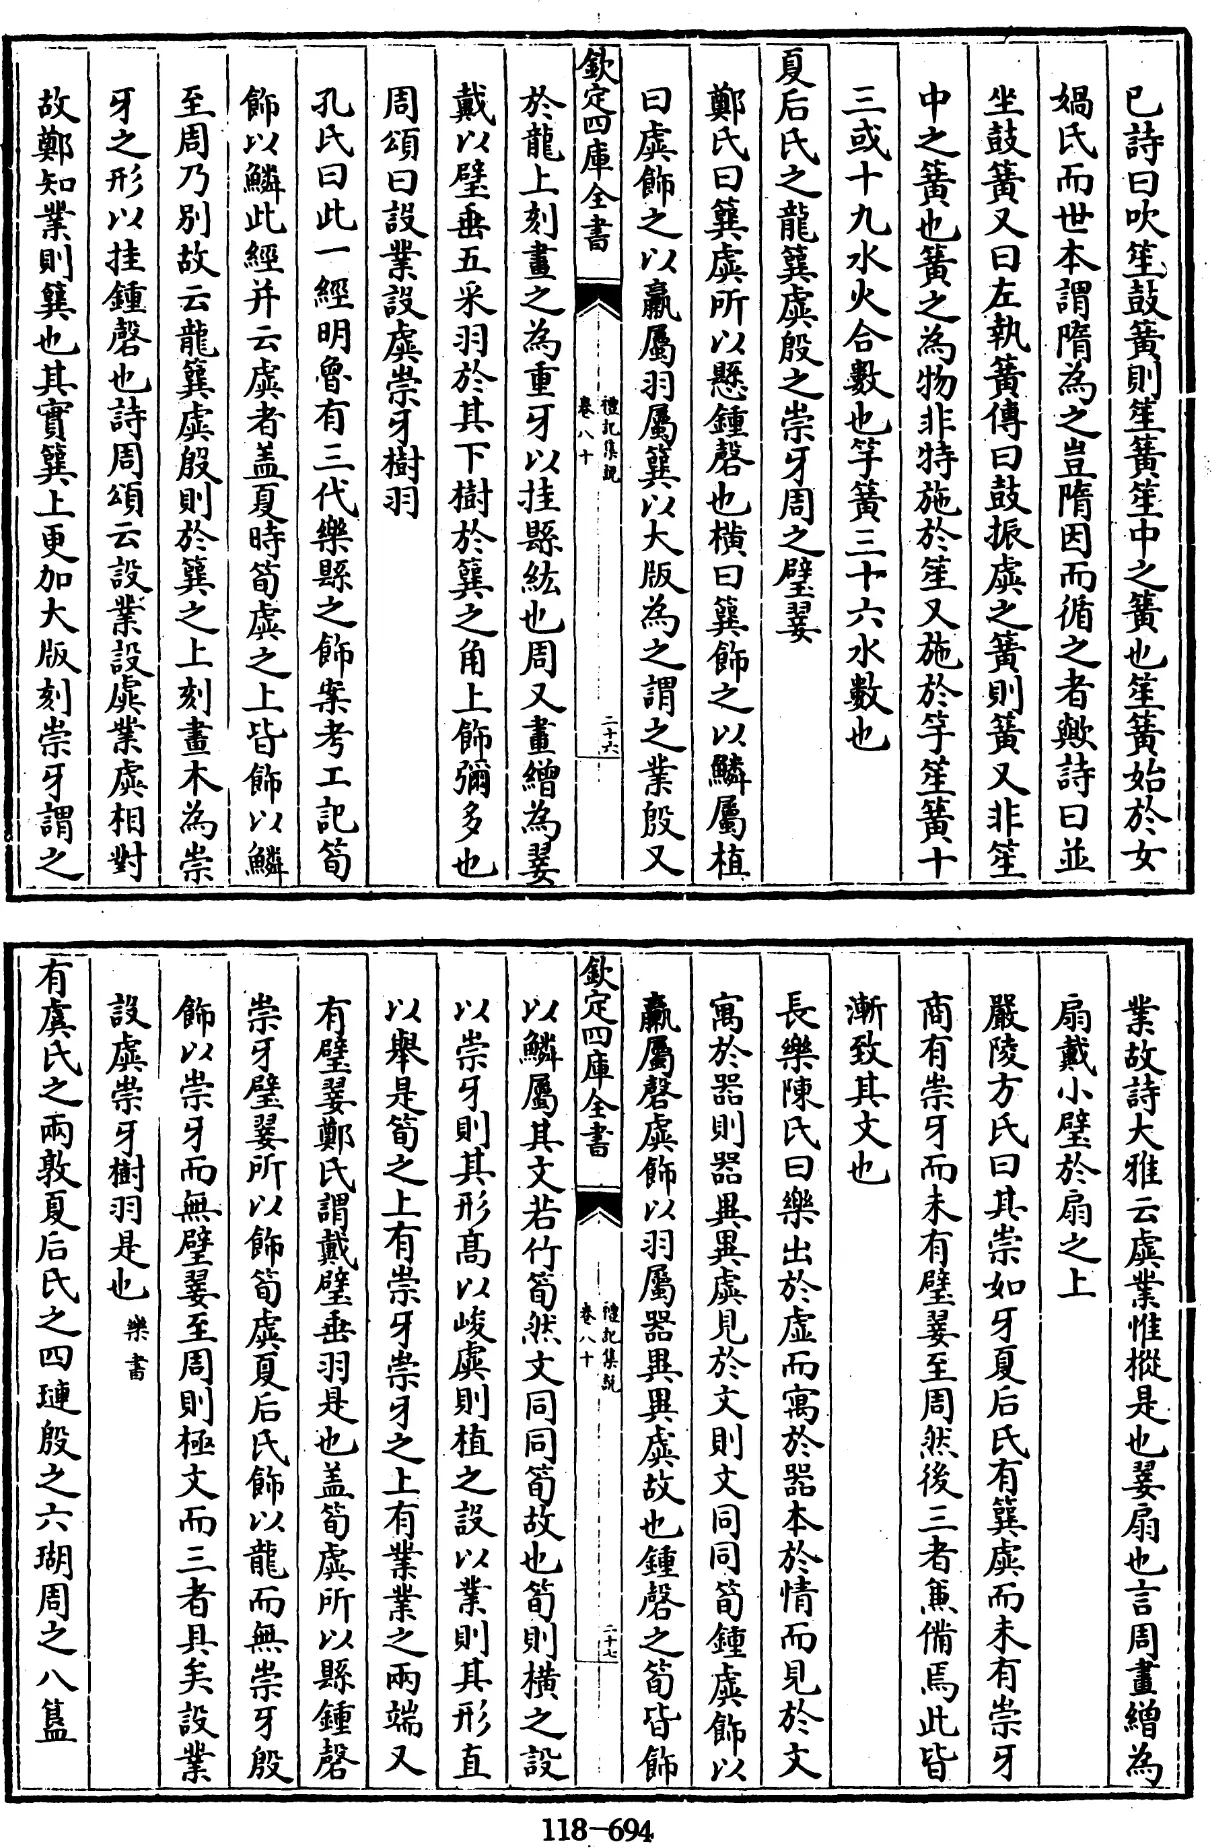 已詩曰吹笙鼓簧則笙簧笙中之簧也笙簧始於女
媧氏而世本謂隋為之豈隋因而循之者歟詩曰並
坐鼓簧又曰左執簧傳曰鼓振虡之簧則簧又非笙
中之簧也簧之為物非特施於笙又施於竽笙簧十
三或十九水火合數也竽簧三十六水數也
夏后氏之龍簨虡殷之崇牙周之璧翣
鄭氏曰簨虡所以懸鍾磬也橫曰簨飾之以鱗屬植
曰虡飾之以臝屬羽屬簨以大版為之謂之業殷又
欽定四庫全書
禮記集說
卷八十
二十六
於龍上刻畫之為重牙以挂縣紘也周又畫繒為翣
戴以璧垂五采羽於其下樹於簨之角上飾彌多也
周頌曰設業設虡崇牙樹羽
孔氏曰此一經明魯有三代樂縣之飾案考工記筍
飾以鱗此經并云虡者盖夏時筍虡之上皆飾以鱗
至周乃別故云龍簨虡殷則於簨之上刻畫木為崇
牙之形以挂鍾磬也詩周頌云設業設虡業虡相對
故鄭知業則簨也其實簨上更加大版刻崇牙謂之
業故詩大雅云虡業惟樅是也翣扇也言周畫繒為
扇戴小璧於扇之上
嚴陵方氏曰其崇如牙夏后氏有簨虡而未有崇牙
商有崇牙而未有璧翣至周然後三者兼備焉此皆
漸致其文也
長樂陳氏曰樂出於虛而寓於器本於情而見於文
寓於器則器異異虡見於文則文同同筍鍾虡飾以
臝屬磬虡飾以羽屬器異異虡故也鍾磬之筍皆飾
欽定四庫全書
禮記集說
卷八十
二十七
以鱗屬其文若竹筍然文同同筍故也筍則橫之設
以崇牙則其形高以峻虡則植之設以業則其形直
以舉是筍之上有崇牙崇牙之上有業業之兩端又
有璧翣鄭氏謂戴璧垂羽是也盖筍虡所以縣鍾磬
崇牙璧翣所以飾筍虡夏后氏飾以龍而無崇牙殷
飾以崇牙而無璧翣至周則極文而三者具矣設業
設虡崇牙樹羽是也 樂書
有虞氏之兩敦夏后氏之四璉殷之六瑚周之八簋
118-694